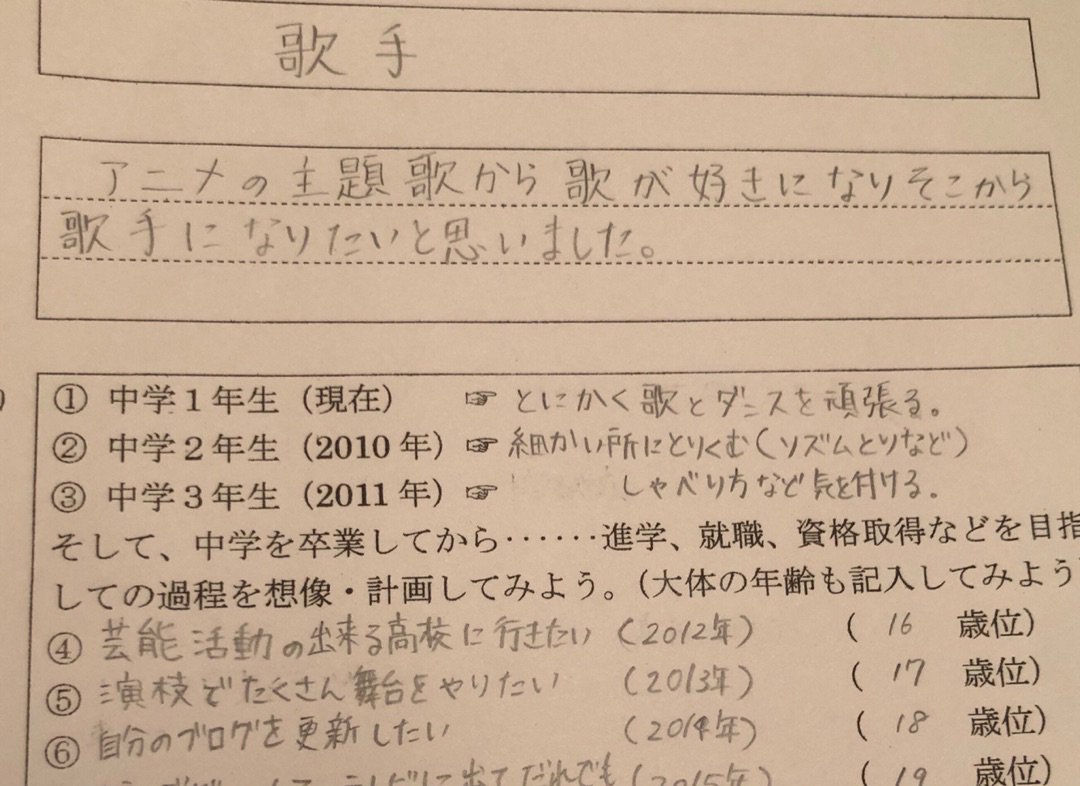 歌手
アニメの主題歌から歌が好きになりそこから
歌手になりたいと思いました。
① 中学1年生（現在） ☞ とにかく歌とダンスを頑張る。
② 中学2年生（2010年）☞ 細かい所にとりくむ（リズムとりなど）
③ 中学3年生（2011年）☞ しゃべり方など気を付ける。
そして、中学を卒業してから……進学、就職、資格取得などを目指
しての過程を想像・計画してみよう。（大体の年齢も記入してみよう
④ 芸能活動の出来る高校に行きたい（2012年） （16 歳位）
⑤ 演枝でたくさん舞台をやりたい （2013年） （17 歳位）
⑥ 自分のブログを更新したい （2014年） （18 歳位）
に出てだれでも（2015年） （19 歳位）